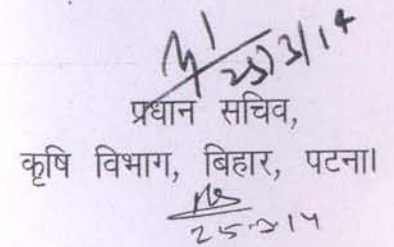 25/3/14
प्रधान सचिव,
कृषि विभाग, बिहार, पटना।
25-3-14